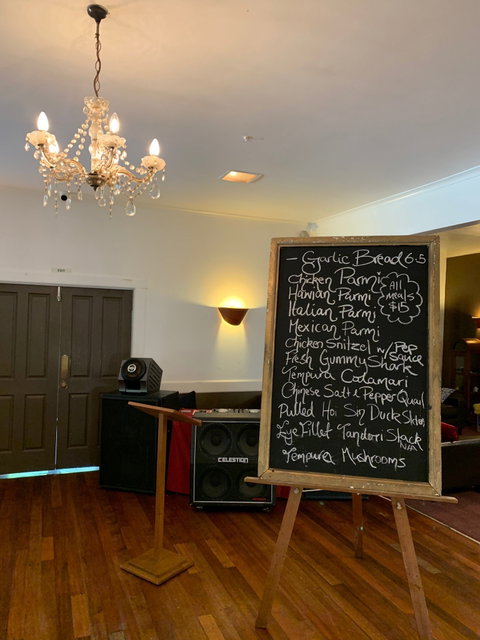 - Garlic Bread 6.5
Chicken Parmi
Hawian Parmi
Italian Parmi
Mexican Parmi
All
meals
$15
Chicken Snitzel w/ Pep Sauce
Fresh Gummy Shark
Tempura Calamari
Chinese Salt & Pepper Quail
Pulled Hoi Sin Duck
Eye Fillet Tandori Stack
N/A
Tempura Mushrooms
CELESTION
EXIT